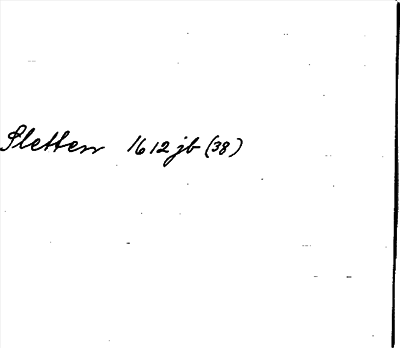 Sletten 1612 jb (38)